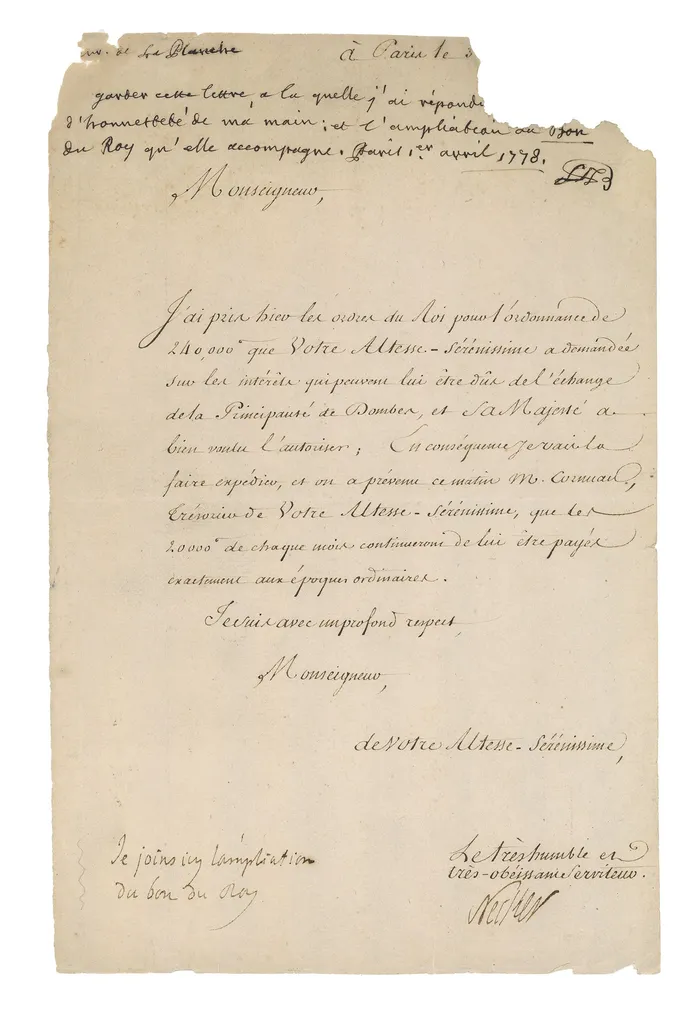 de La Planche à Paris le 3
garder cette lettre, a la quelle j'ai répond
d'honnetteté de ma main; et l'ampliation du bon
du Roy qu'elle accompagne. Paris 1.er avril 1778.
Monseigneur,
J'ai pris hier les ordres du Roi pour l'ordonnance de
240,000# que Votre Altesse-Sérénissime a demandée
sur les intérêts qui peuvent lui être dûs de l'échange
de la Principauté de Dombes, et Sa Majesté a
bien voulu l'autoriser; En conséquence je vais la
faire expédier, et on a prévenu ce matin M. Cornuau,
Trésorier de Votre Altesse-Sérénissime, que les
20000# de chaque mois continueront de lui être payés
exactement aux époques ordinaires.
Je suis avec un profond respect,
Monseigneur,
de Votre Altesse-Sérénissime,
Je joins icy l'ampliation
du bon du Roy
Le très humble et
très-obéissant Serviteur.
Necker